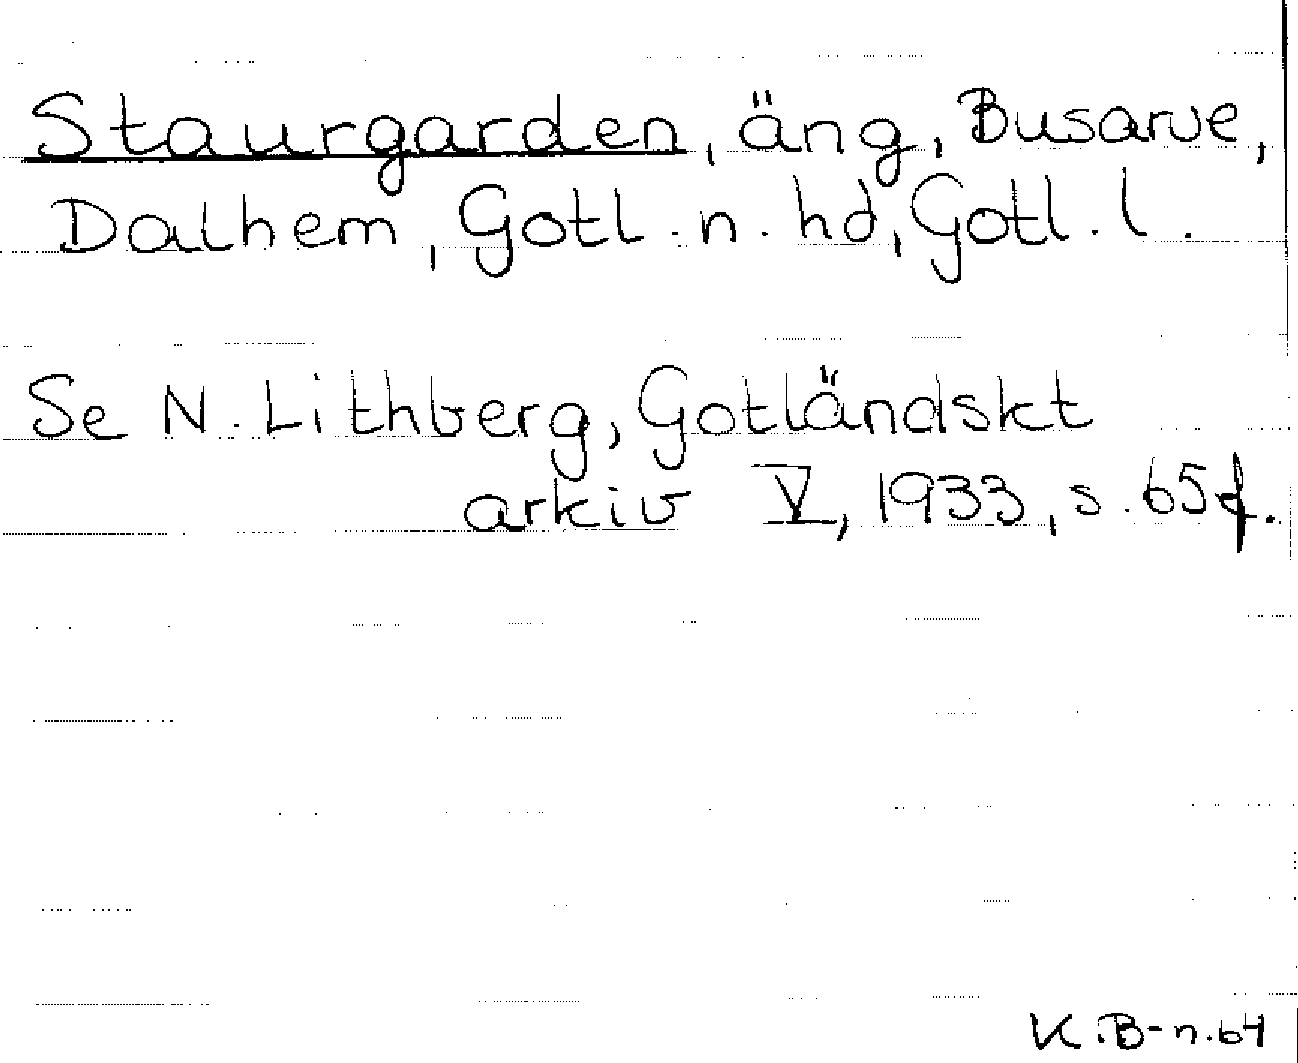 Staurgarden, äng, Busarve,
Dalhem, Gotl. n. hd, Gotl. l.
Se N. Lithberg, Gotländskt
arkiv V, 1933, s. 65 f.
K.B-n.64